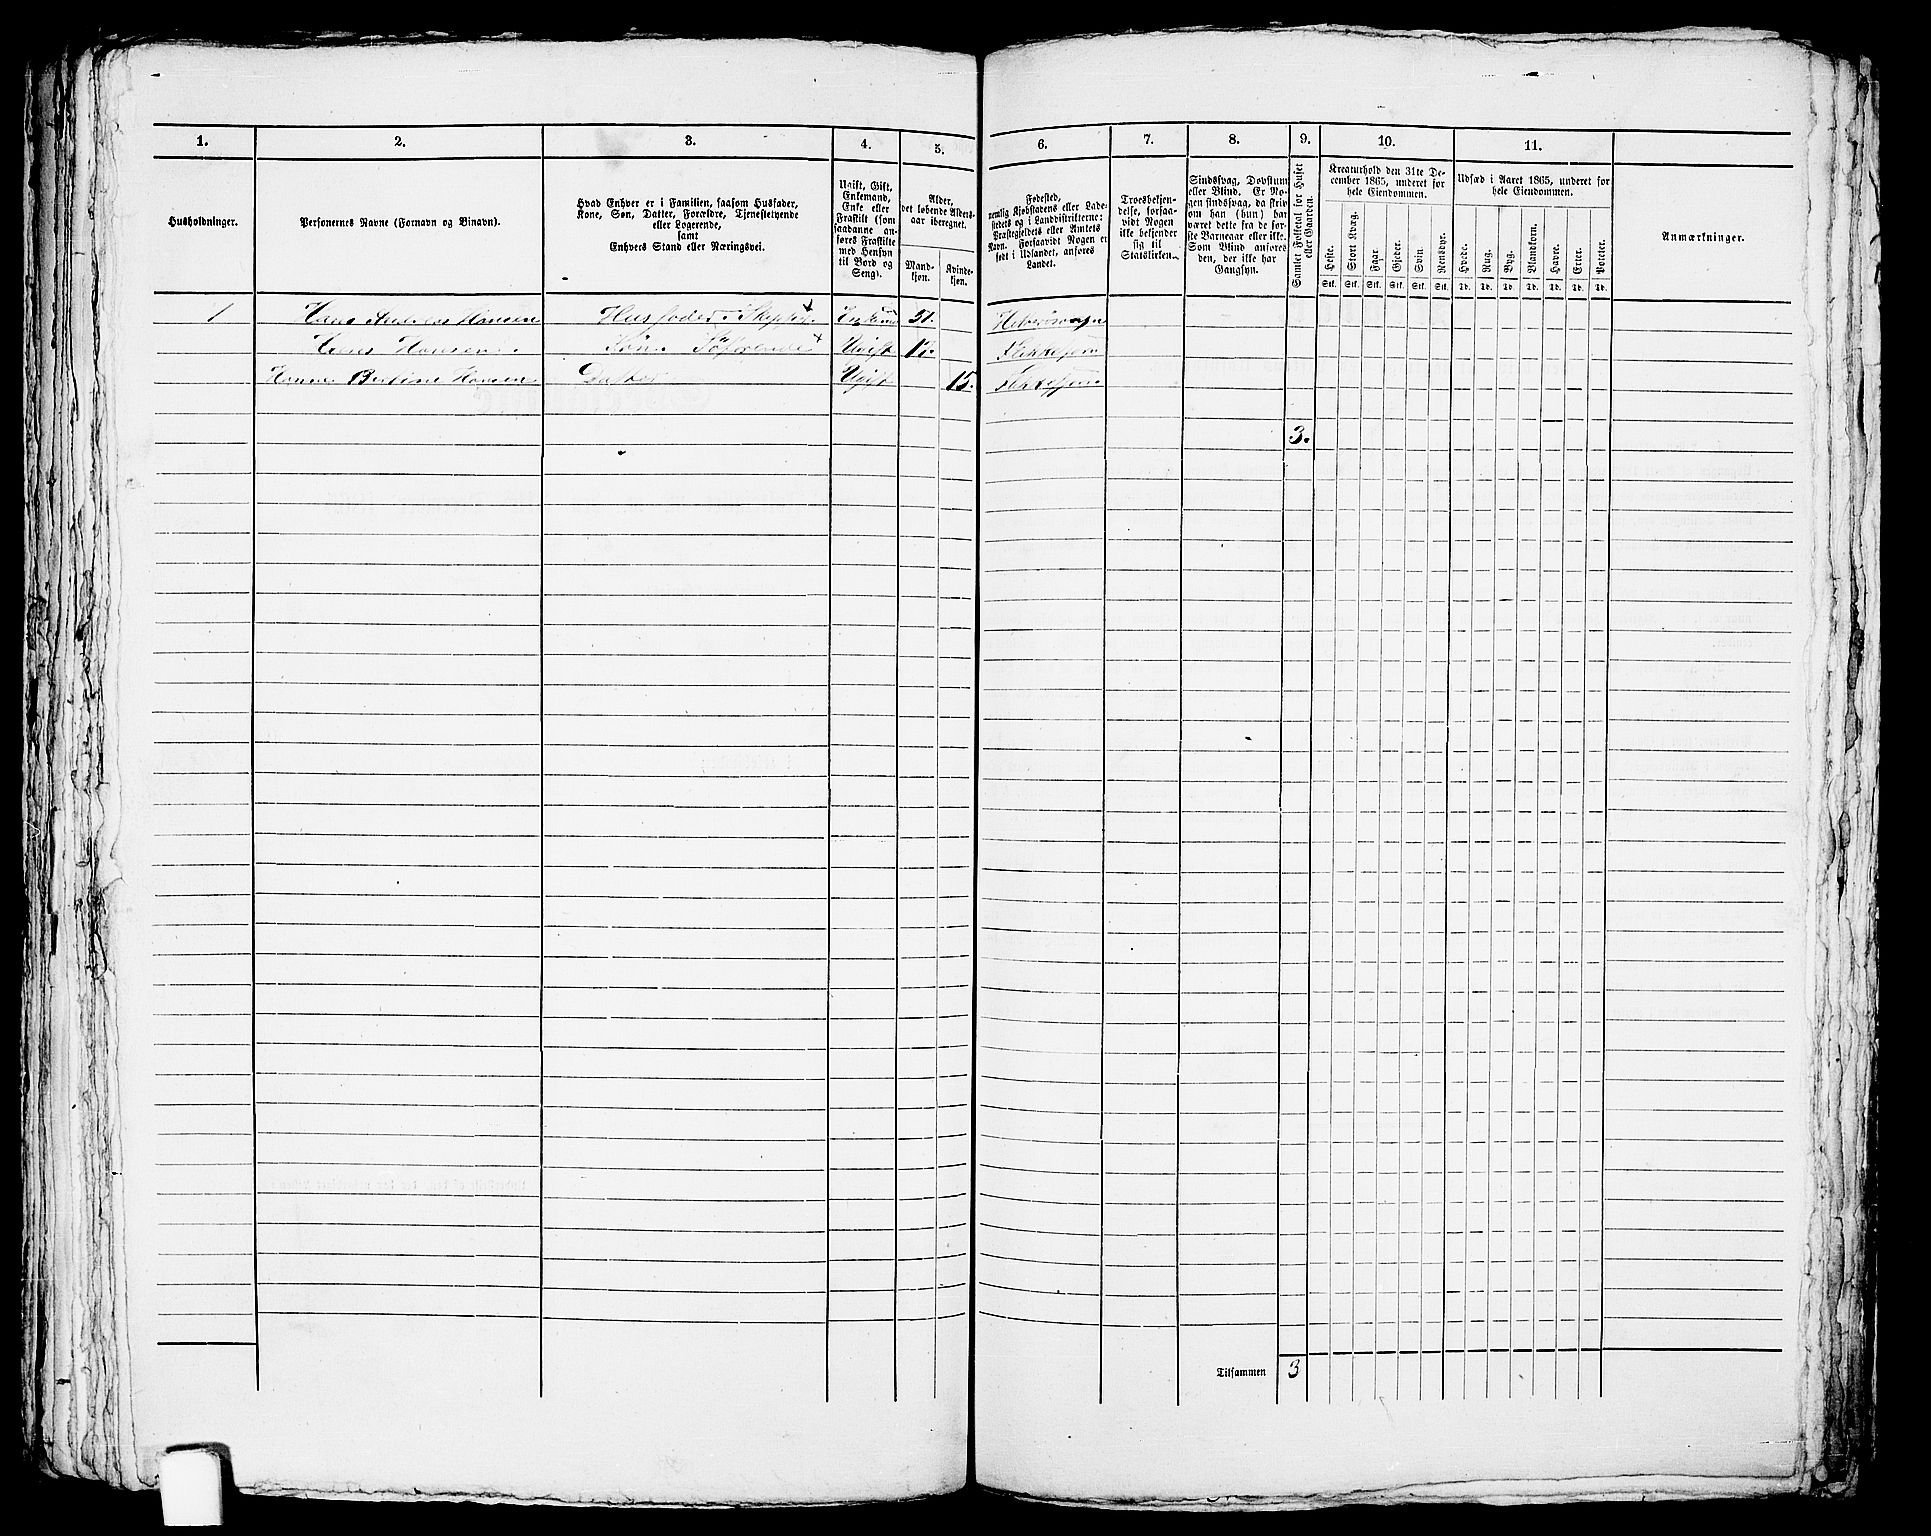 1. 2. 3. 4. 5. 6. 7. 8. 9. 10. 11.
Husholdninger.
Personernes Navne (Fornavn og Binavn).
Hvad Enhver er i Familien, saasom Husfader,
Kone, Søn, Datter, Forældre, Tjenestetyende
eller Logerende,
samt
Enhvers Stand eller Næringsvei.
Ugift, Gift,
Enkemand,
Enke eller
Fraskilt (som
saadanne an-
føres Fraskilte
med Hensyn
til Bord og
Seng).
Alder,
det løbende Alders-
aar iberegnet.
Mand-
kjøn.
Kvinde-
kjøn.
Fødested,
nemlig Kjøbstadens eller Lade-
stedets og i Landdistrikterne:
Præstegjeldets eller Amtets
Navn. Forsaavidt Nogen er
født i Udlandet, anføres
Landet.
Troesbekjen-
delse, forsaa-
vidt Nogen
ikke bekjender
sig til
Statskirken.
Sindssvag, Døvstum
eller Blind. Er No-
gen sindssvag, da skriv
om han (hun) har
været dette fra de før-
ste Barneaar eller ikke.
Som Blind anføres
den, der ikke har
Gangsyn.
Samlet Folketal for Huset
eller Gaarden.
Kreaturhold den 31te De-
cember 1865, underet for
hele Eiendommen.
Heste. Stort Kvæg. Faar. Gjeder. Svin. Rensdyr.
Stk. Stk. Stk. Stk. Stk. Stk.
Udsæd i Aaret 1865, underet for
hele Eiendommen.
Hvede. Rug. Byg. Blandkorn. Havre. Erter. Poteter.
Td. Td. Td. Td. Td. Td. Td.
Anmærkninger.
1 Hans Andreas Hansen Husfader Skipper 51.
Hans Hansen Søn Søfarende Ugift 17. Flekkefjord
Hanne Bertine Hansen Datter Ugift 15. Flekkefjord
3.
Tilsammen 3